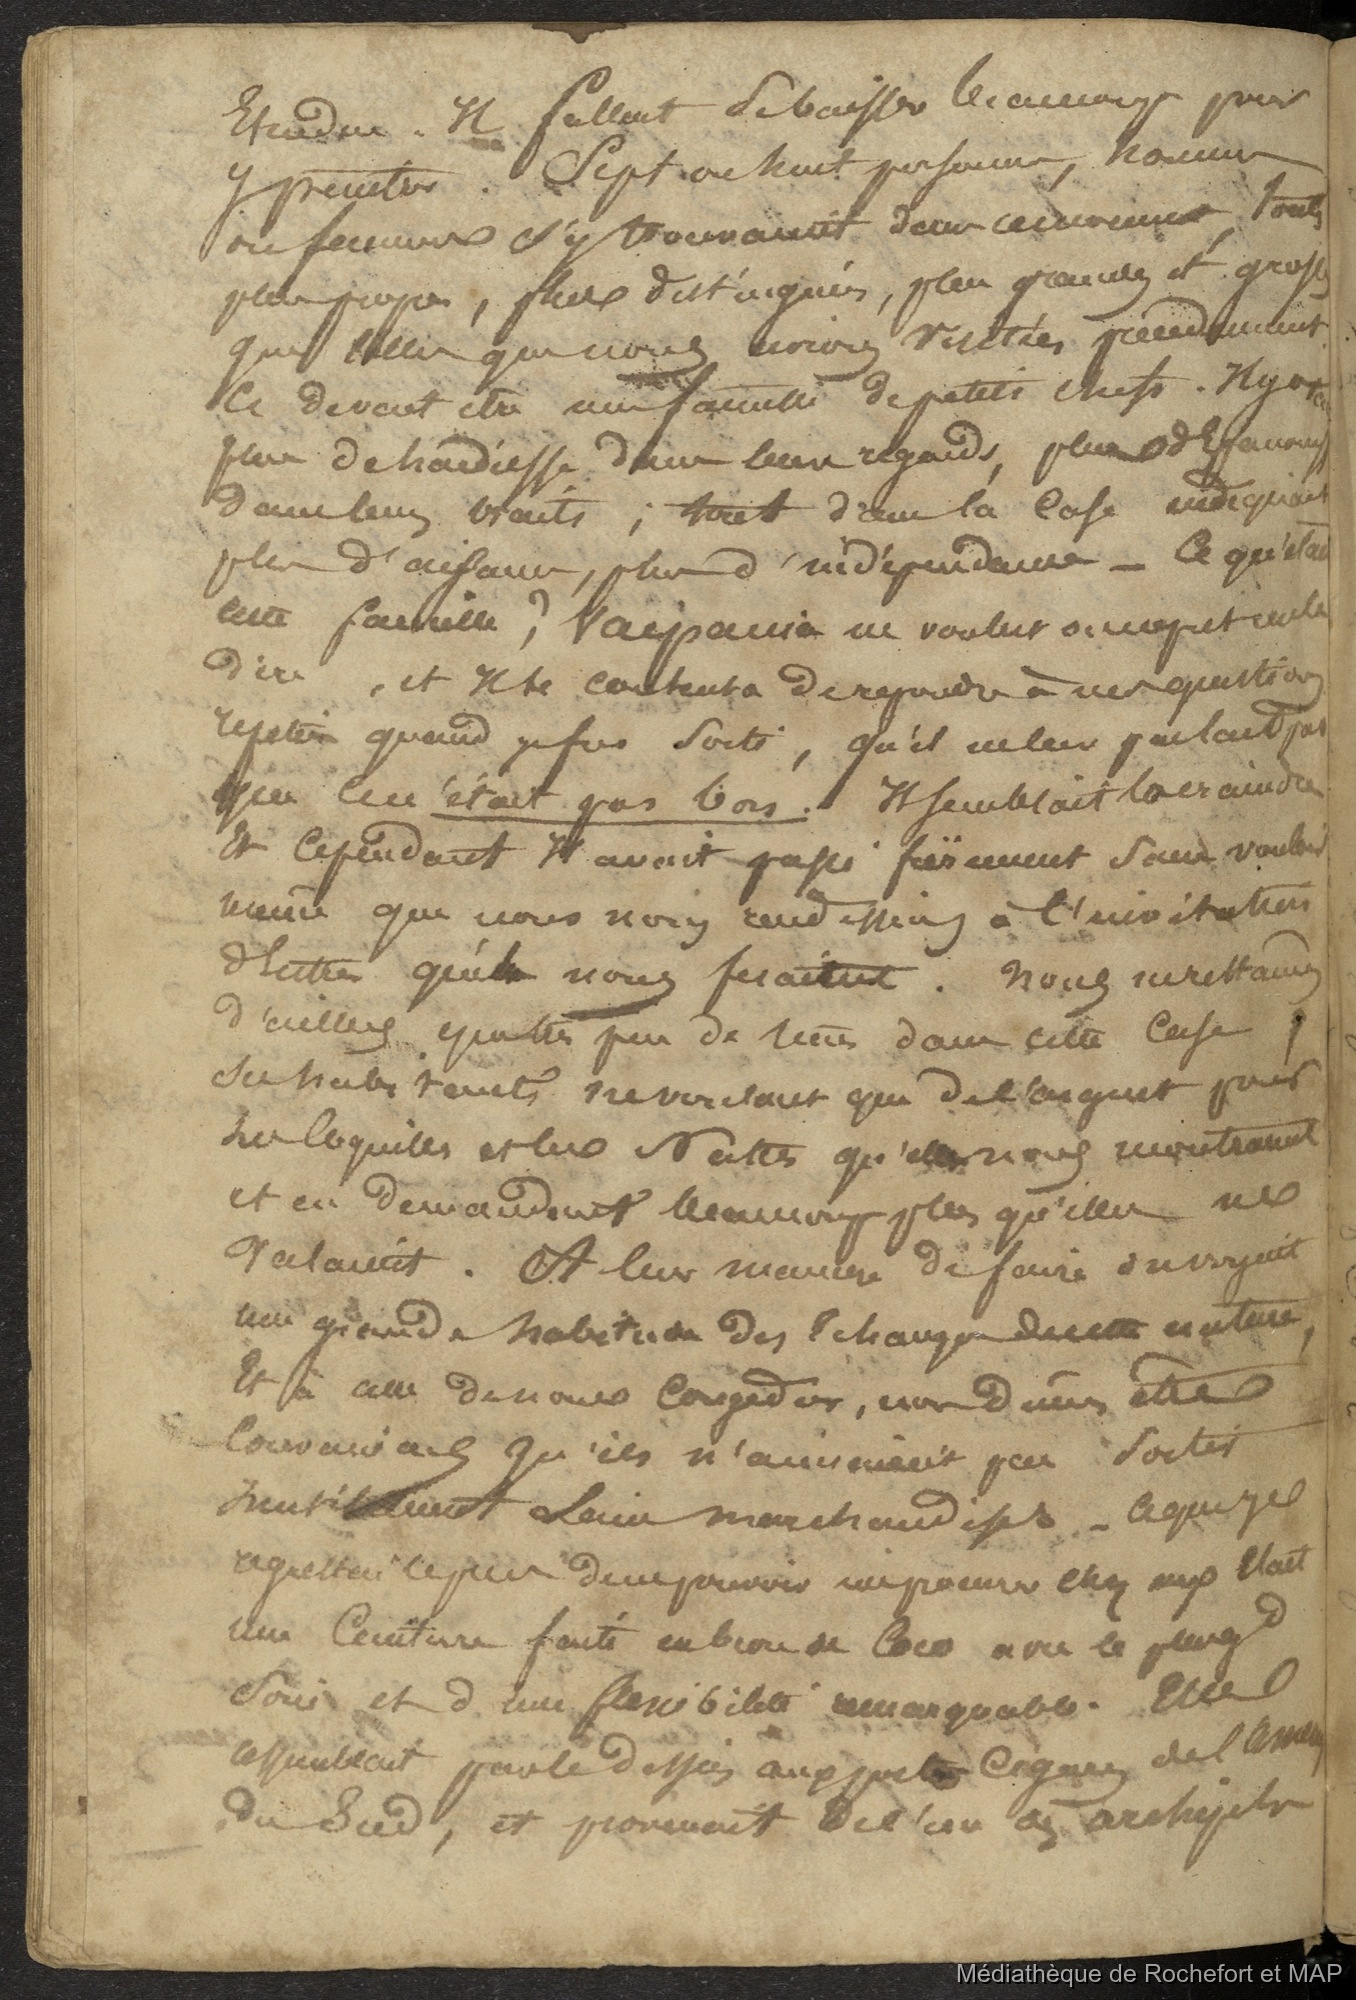 Etendue. Il fallait se baisser beaucoup pour
y pénétrer. Sept ou huit personnes, hommes
ou femmes s'y trouvaient dans ce moment, tous
plus propres, plus distingués, plus grands et gros
que celles que nous avions visitées précédemment.
Ce devait être une famille de petits chefs. Il y avait
plus de hardiesse dans leurs regards, plus
dans leurs traits ; tout dans la case indiquait
plus d'aisance, plus d'indépendance – Ce qu'était
cette famille ? Vaipania ne voulut ou ne put me le
dire, et il se contenta de répondre à mes questions
quand je fus sorti, qu'il ne leur parlait pas
que ce n'était pas bon. Il semblait les craindre
Et cependant il avait passé fièrement sans vouloir
même que nous nous rendissions à l'invitation
d'entrer qu'ils nous faisaient. Nous ne restames
d'ailleurs que très peu de tems dans cette case ;
Ses habitants ne voulant que de l'argent pour
les coquilles et les Nattes qu'elles nous montraient
et en demandant beaucoup plus qu'elles ne
valaient. A leur manière de faire on voyait
une grande habitude des échanges de cette nature,
Et à celle de nous congédier, nous dumes être
convaincus qu'ils n'aimaient pas sortir
inutilement leurs marchandises – Ce que je
regrettai le plus de ne pouvoir me procurer chez eux était
une Ceinture faite en brou de Coco avec le plus gd
soin et d'une flexibilité remarquable. Elle
ressemblait par le dessin aux porte Cigares de l'Amer
du Sud, et provenait de l'un des archipels